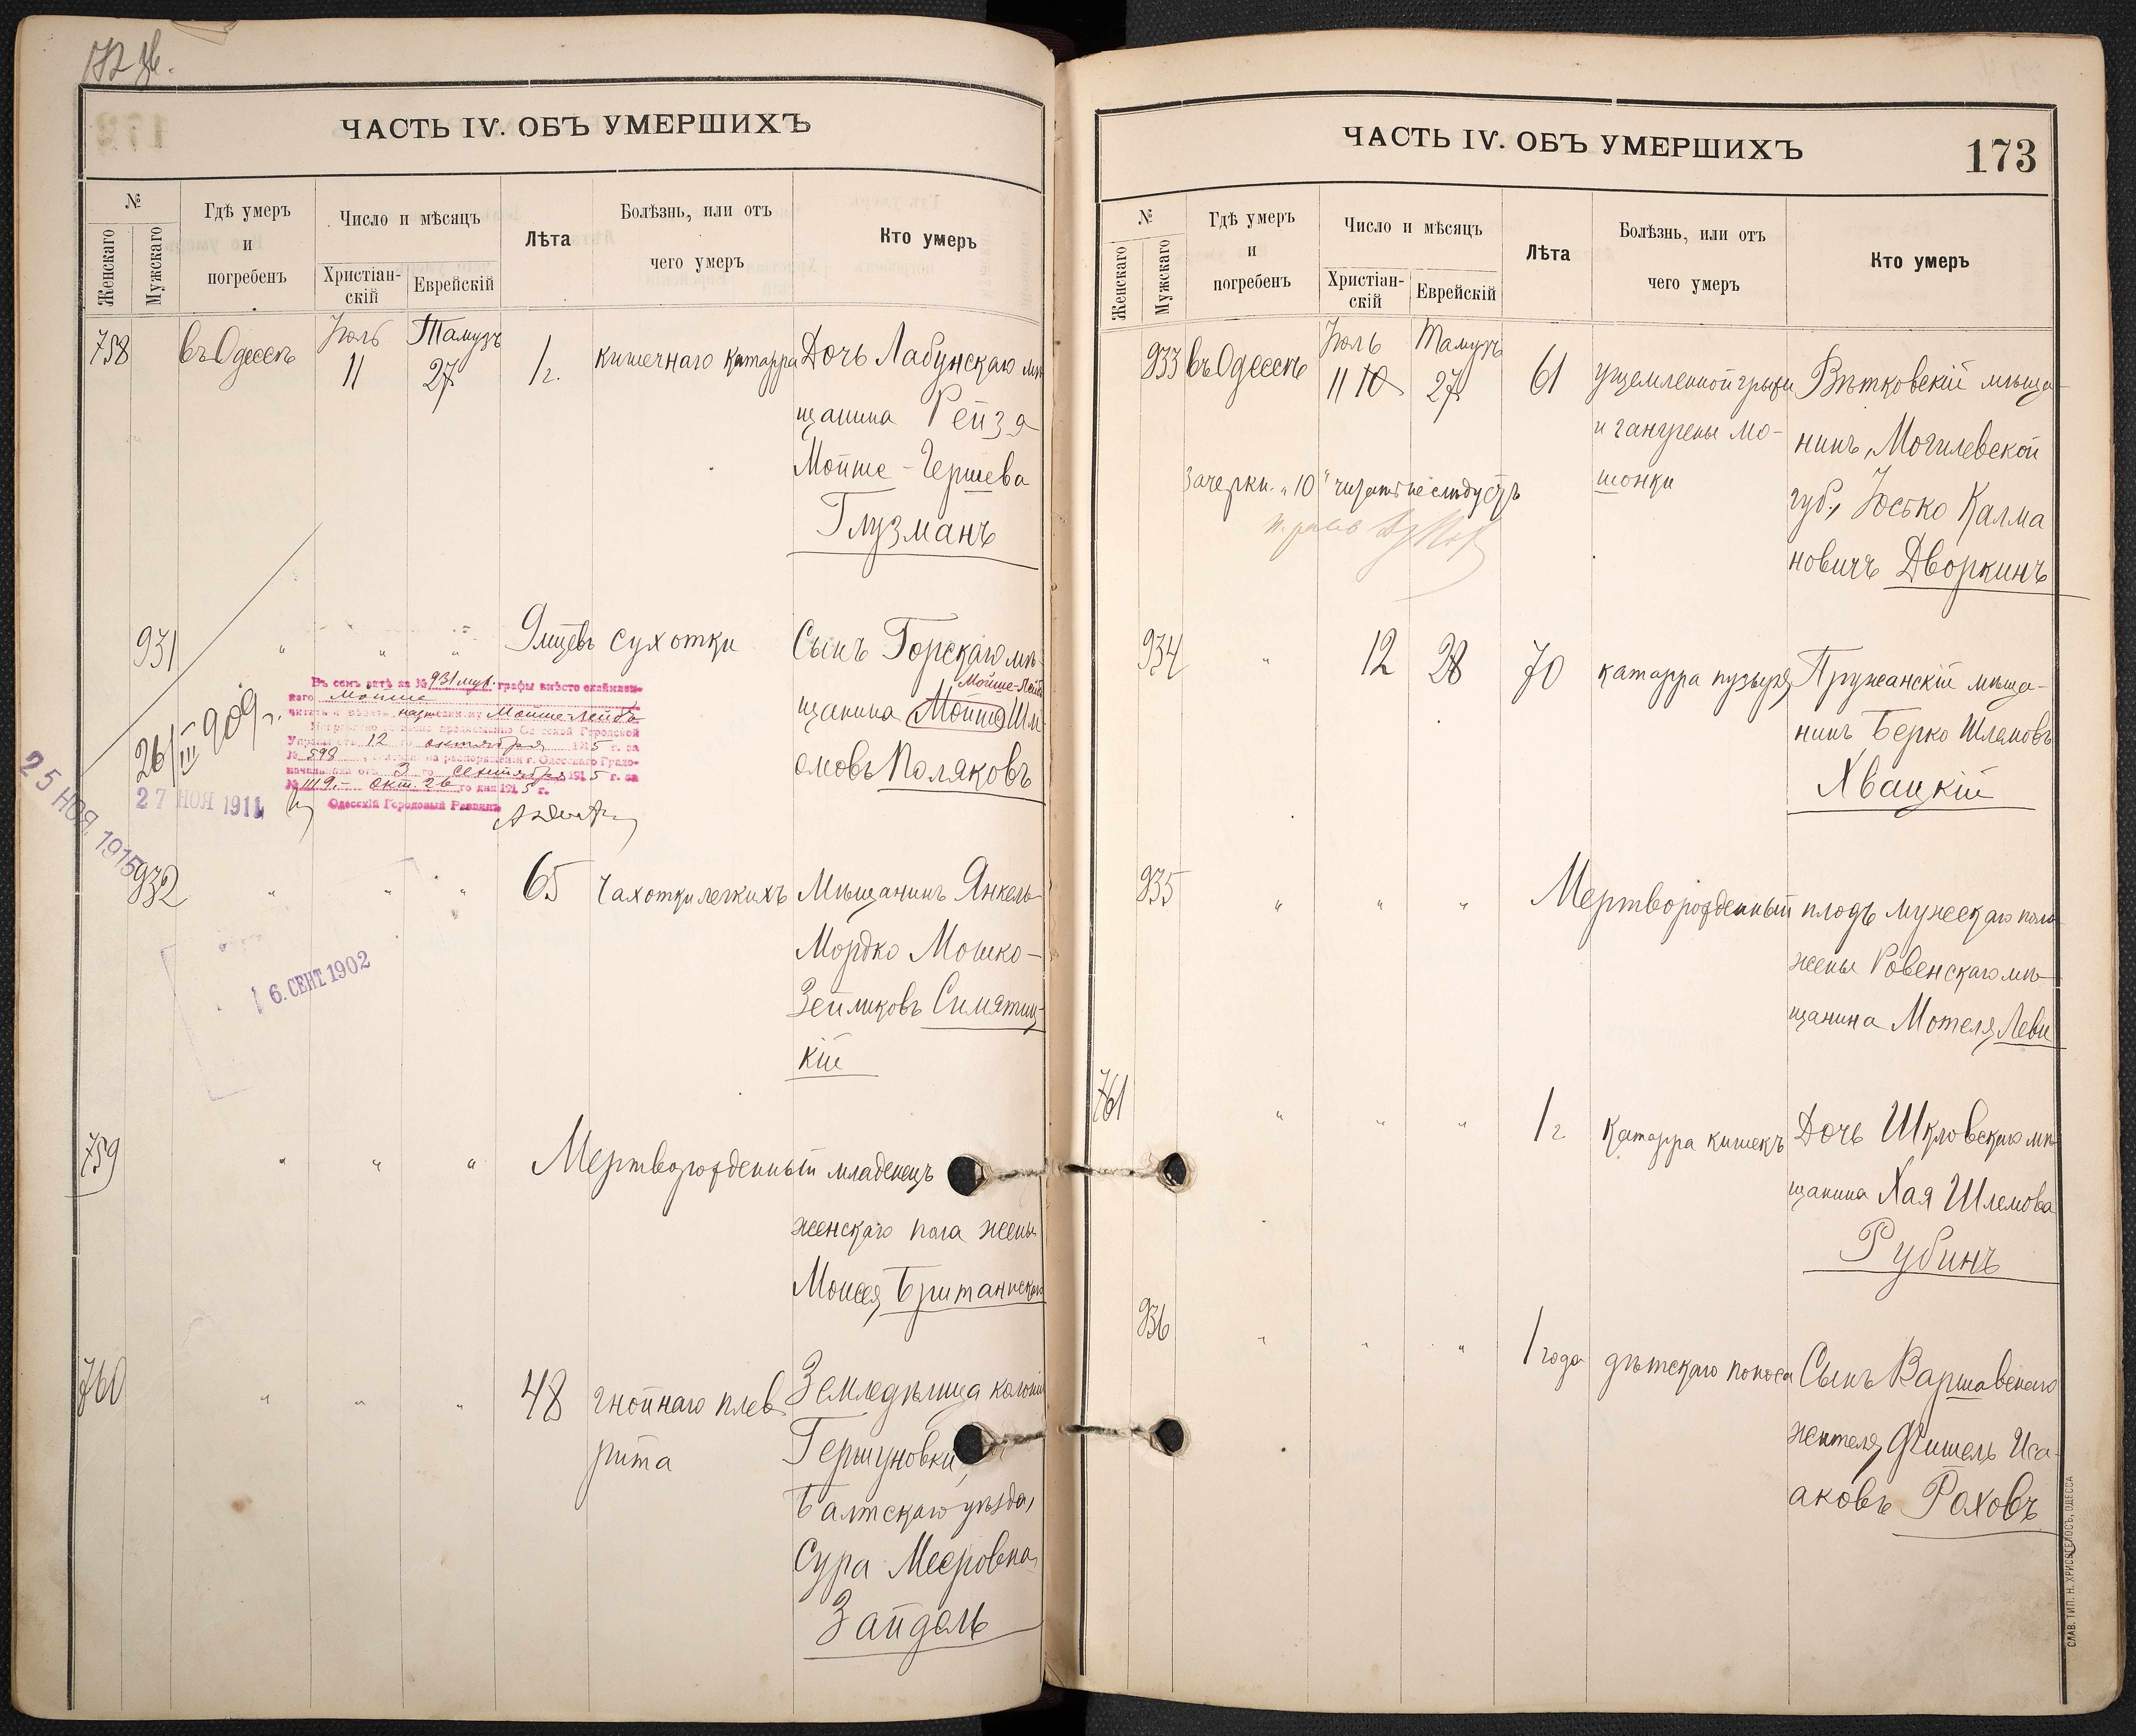 ЧАСТЬ IV. ОБЪ УМЕРШИХЪ
№
Женскаго
Мужскаго
Гдѣ умеръ
и
погребенъ
Число и мѣсяцъ
Христіан-
скій
Еврейскій
Лѣта
Болѣзнь, или отъ
чего умеръ
Кто умеръ
758
въ Одессѣ
Іюль
11
Тамузъ
27
1 г.
кишечнаго катарра
Дочь Лабунскаго мѣ
щанина Рейзя
Мойше-Гершева
Глузманъ
931
" " "
9 мцевъ
сухотки
Сынъ Горскаго мѣ-
Мойше-Лейб
щанина Мойше Шл
омовъ Поляковъ
Въ семъ актѣ за № 931 муж. графы вмѣсто
наго Мойше
читать Мойше Лейба
Городской
Управы отъ 12 го октября 1915 г. за
№ 598, на распоряженіи г. Одесскаго Градо-
начальника отъ 3 го сентября 1915 г. за
№ 1119.- окт. 26 го дня 1915 г.
Одесскій Городовый Раввинъ
26/III 909 г.
27 НОЯ 1911
25 НОЯ 1915
932
" " "
65
чахотки легкихъ
Мѣщанинъ Янкель-
Мордко Мошко-
Зейликовъ Симятиц-
кій
6. СЕНТ 1902
759
" " "
Мертворожденный младенецъ
женскаго пола жены
Моисея Британискаго
760
" " "
48
гнойнаго плев
рита
Земледѣлица колоніи
Гершуновки,
Балтскаго уѣзда,
Сура Мееровна
Зайдель
ЧАСТЬ IV. ОБЪ УМЕРШИХЪ
173
№
Женскаго
Мужскаго
Гдѣ умеръ
и
погребенъ
Число и мѣсяцъ
Христіан-
скій
Еврейскій
Лѣта
Болѣзнь, или отъ
чего умеръ
Кто умеръ
933
въ Одессѣ
Іюль
11 10
Тамузъ
27
61
ущемленной грыжи
и гангрены мо-
шонки
Вѣтковскій мѣща-
нинъ, Могилевской
губ., Юсько Калма
новичъ Дворкинъ
Зачеркн. "10" читать не слѣдуетъ
934
"
12
28
70
катарра пузыря
Пружанскій мѣща-
нинъ Берко Шлемовъ
Хвацкій
935
" " "
Мертворожденный плодъ мужескаго пола
жены Ровенскаго мѣ-
щанина Мотеля Леви
761
" " "
1 г.
катарра кишекъ
Дочь Шкловскаго мѣ
щанина Хая Шлемова
Рубинъ
936
" " "
1 года
дѣтскаго поноса
Сынъ Варшавскаго
жителя Фишель Иса-
аковъ Роховъ
СЛАВ. ТИП. Н. ХРИСОГЕЛОСЪ, ОДЕССА